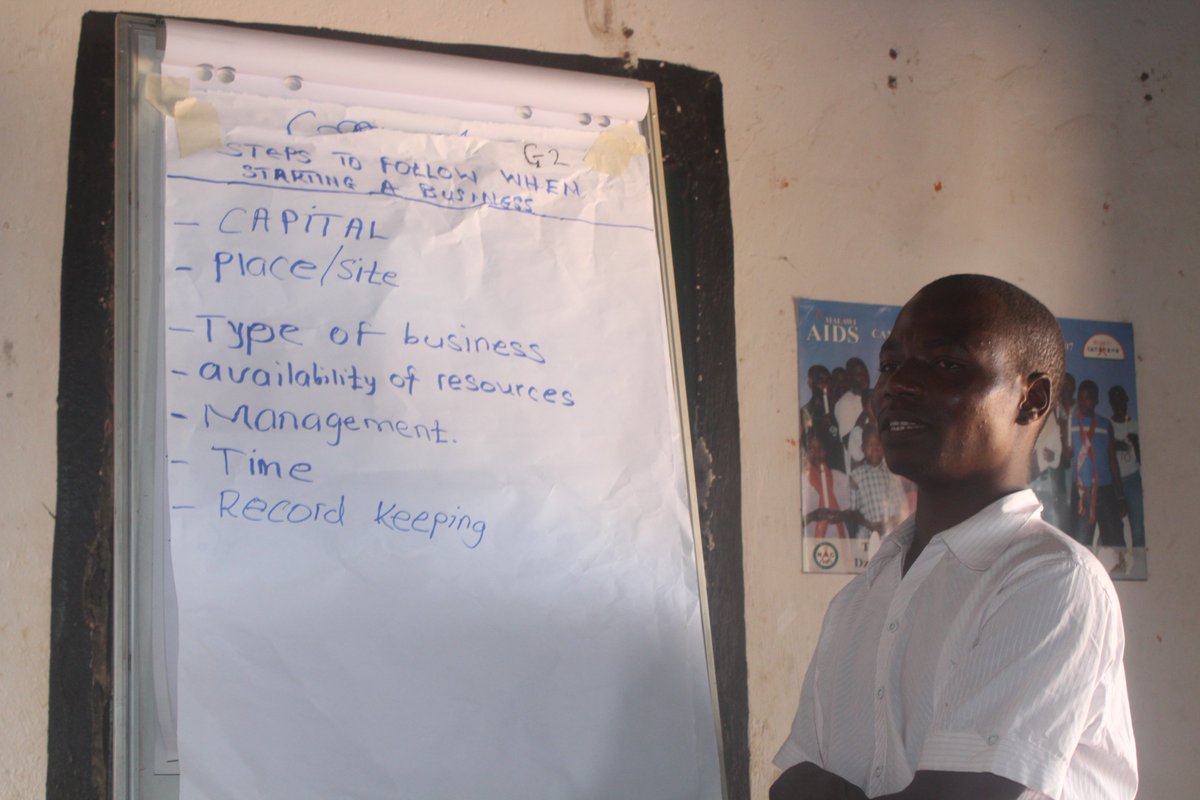 G2
STEPS TO FOLLOW WHEN
STARTING A BUSINESS
- CAPITAL
- Place/Site
- Type of business
- availability of resources
- Management.
- Time
- Record keeping
MALAWI
AIDS